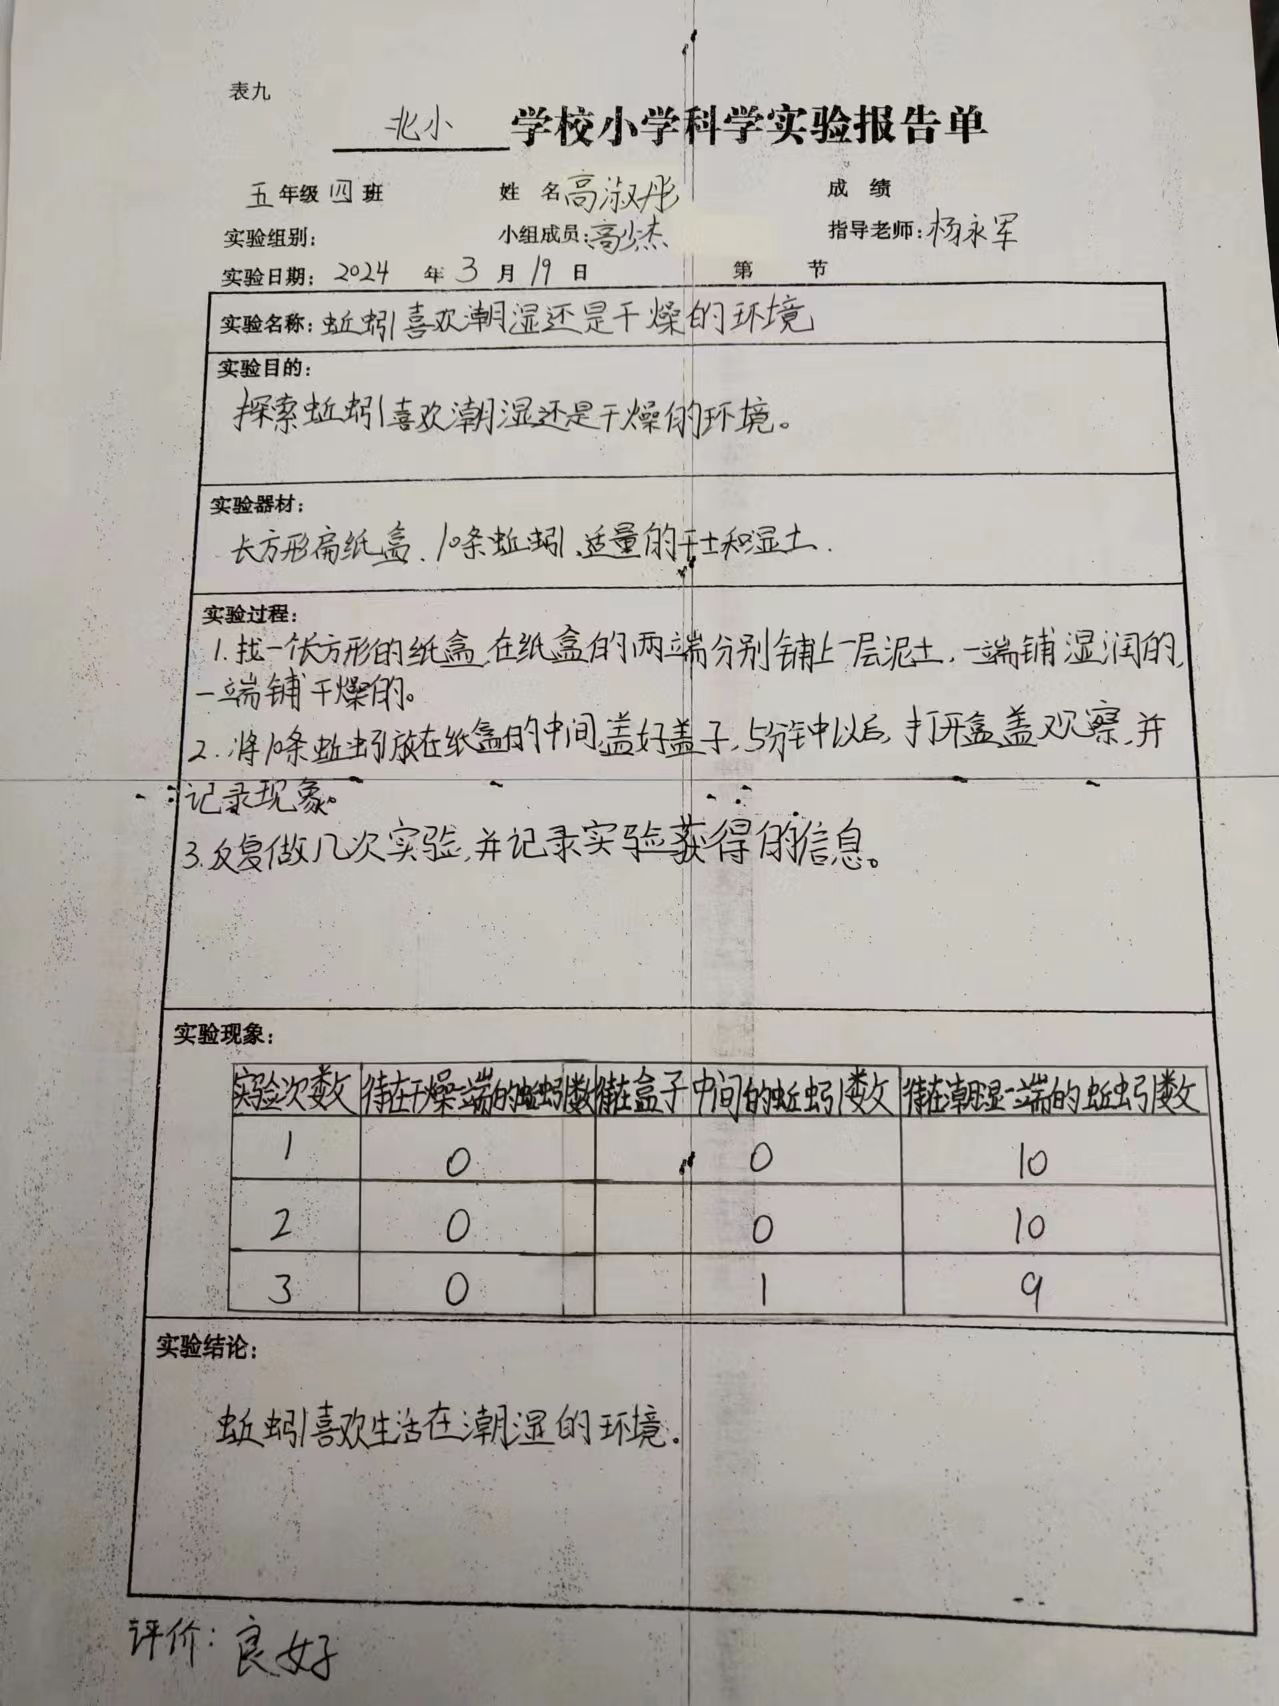 表九
北小 学校小学科学实验报告单
五年级四班 姓 名高淑彤 成 绩
实验组别: 小组成员:高少杰 指导老师:杨永军
实验日期: 2024 年 3 月 19 日 第 节
实验名称:蚯蚓喜欢潮湿还是干燥的环境
实验目的:
探索蚯蚓喜欢潮湿还是干燥的环境。
实验器材:
长方形扁纸盒、10条蚯蚓、适量的干土和湿土.
实验过程:
1.找一个长方形的纸盒,在纸盒的两端分别铺上一层泥土,一端铺湿润的,
一端铺干燥的。
2.将10条蚯蚓放在纸盒的中间,盖好盖子,5分钟以后,打开盒盖观察,并
记录现象。
3.反复做几次实验,并记录实验获得的信息。
实验现象:
实验次数 待在干燥一端的蚯蚓数 待在盒子中间的蚯蚓数 待在潮湿一端的蚯蚓数
1 0 0 10
2 0 0 10
3 0 1 9
实验结论:
蚯蚓喜欢生活在潮湿的环境.
评价:良好